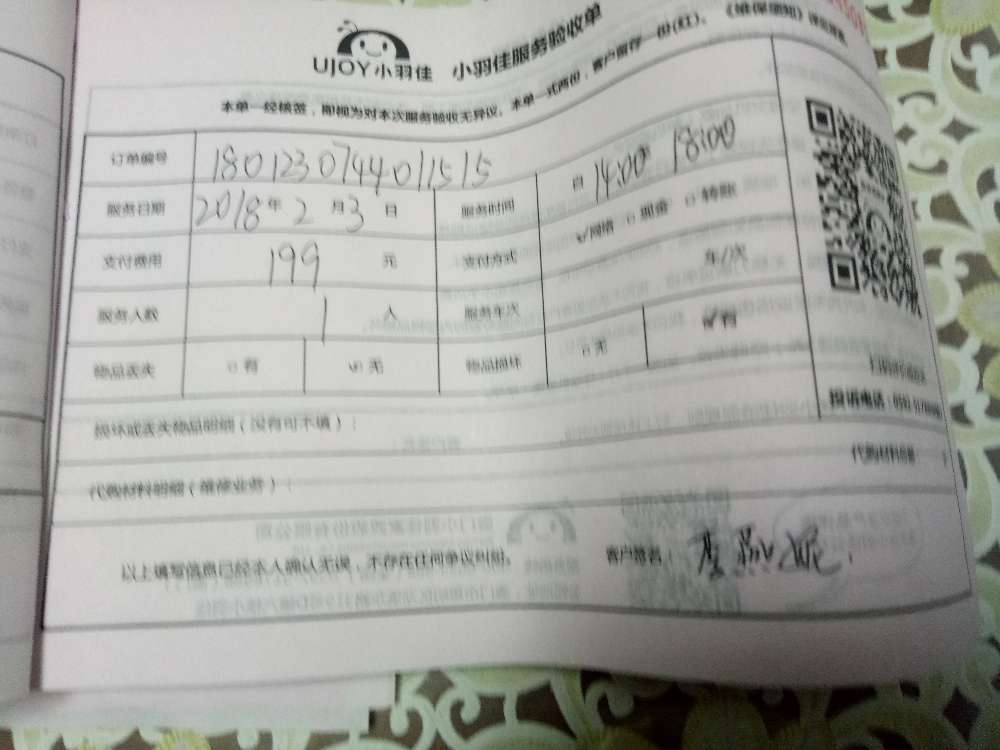 UJOY小羽佳 小羽佳服务验收单
本单一经核签，即视为对本次服务验收无异议。本单一式两份，客户留存一份(红)。《维保须知》
订单编号 1801230744011515
服务日期 2018年2月3日 服务时间 自 14:00 18:00
支付费用 199 元 支付方式 网络 现金 转账
服务人数 1 人 服务车次 车/次
物品丢失 有 无 物品损坏 无 有
投诉电话：
损坏或丢失物品明细（没有可不填）：
代购材料明细（维修业务）： 代购材料
以上填写信息已经本人确认无误，不存在任何争议纠纷。 客户签名：